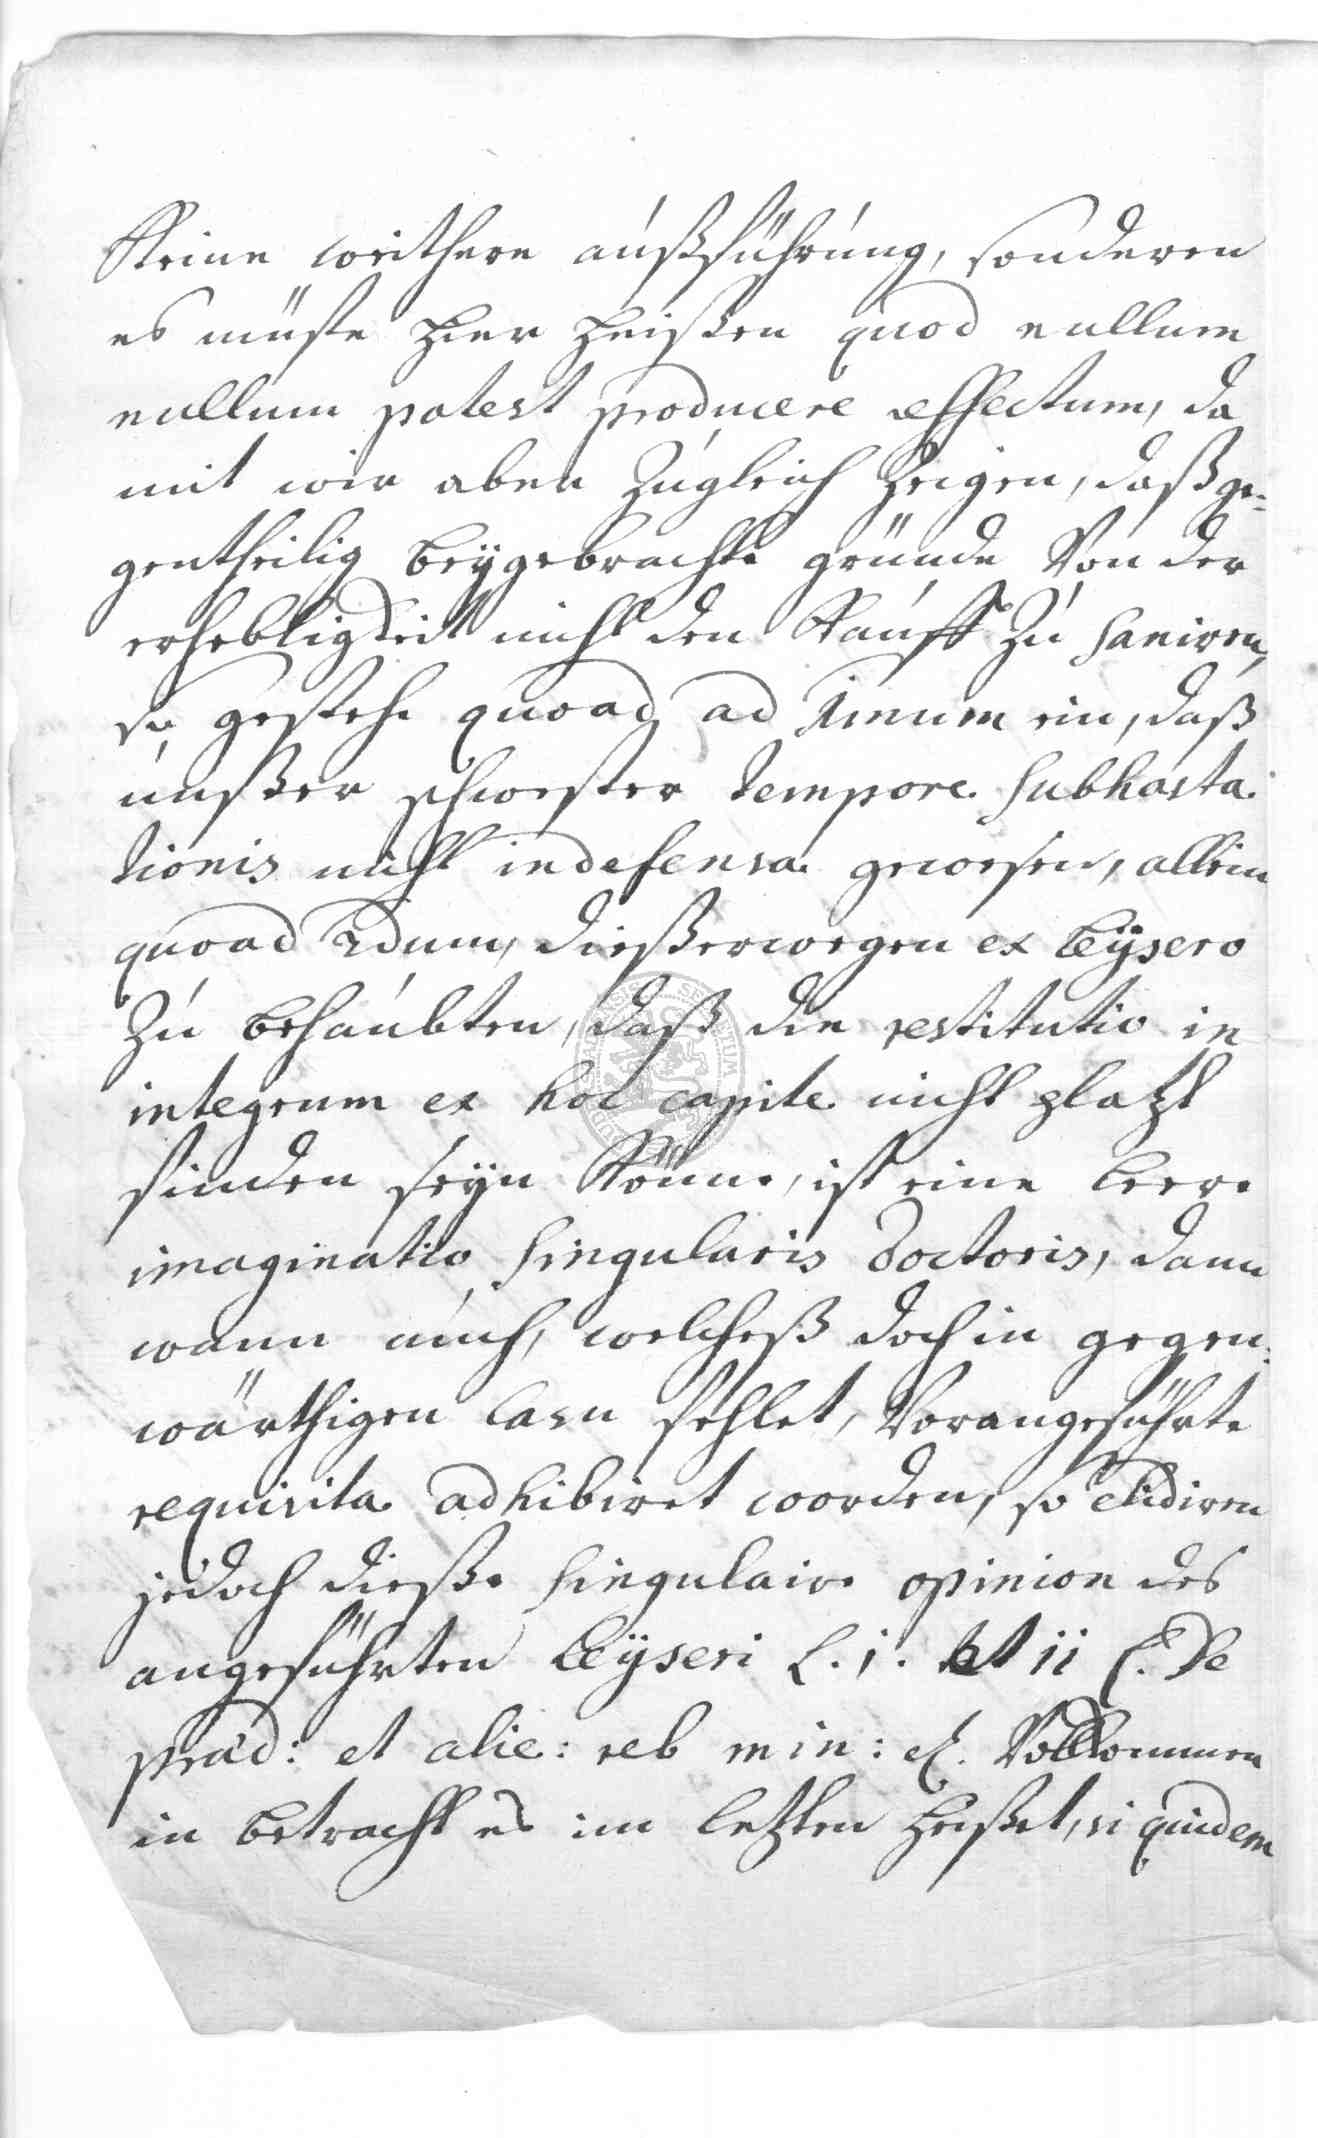 Keine weithere außführung, sonderen
es müste hier heißen quod nullum
nullum potest producere effectum, da
mit wir aber zugleich zeigen, daß ge-
gentheilig beÿgebrachte gründe von der
erhebligkeit nicht den Kauff zu saniren,
so gestehe quoad ad 1mum ein, daß
unßer schwester tempore subhasta-
tionis nicht indefensa gewesen, allein
quoad 2dum, dießerwegen ex Leÿsero
zu behaubten, daß die restitutio in
integrum ex hoc capite nicht platzt
finden seÿn könne, ist eine leere
imaginatio singularis Doctoris, dann
wann auch, welcheß doch in gegen-
wärthigen casu fehlet, vorangeführte
requisita adhibiret worden, so elidiren
jedoch dieße singulaire opinion des
angeführten Leÿseri l. 1. et 11 C. de
præd: et alie: reb min: et. vollkommen
in betracht es im letzten heißet, si quidem